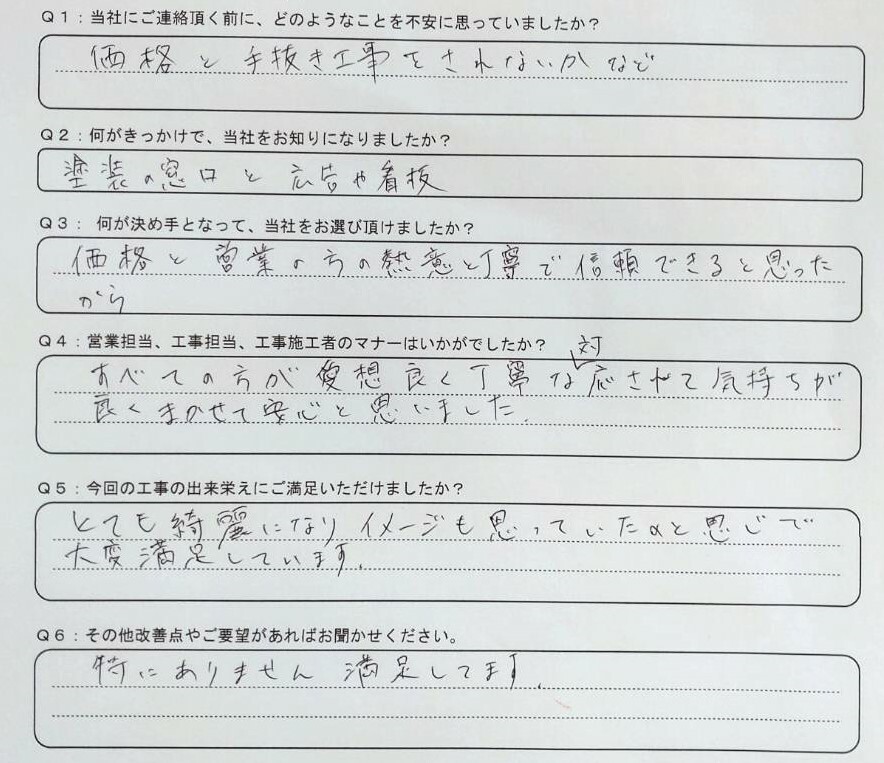 Q1：当社にご連絡頂く前に、どのようなことを不安に思っていましたか？
価格と手抜き工事をされないかなど
Q2：何がきっかけで、当社をお知りになりましたか？
塗装の窓口と広告や看板
Q3： 何が決め手となって、当社をお選び頂けましたか？
価格と営業の方の熱意と丁寧で信頼できると思った
から
Q4：営業担当、工事担当、工事施工者のマナーはいかがでしたか？
すべての方が愛想良く丁寧な対応されて気持ちが
良くまかせて安心と思いました.
Q5：今回の工事の出来栄えにご満足いただけましたか？
とても綺麗になりイメージも思っていたのと思じで
大変満足しています.
Q6：その他改善点やご要望があればお聞かせください。
特にありません 満足してます.